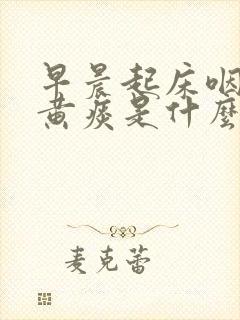 早晨起床咽
黄痰是什麼
麦克蕾